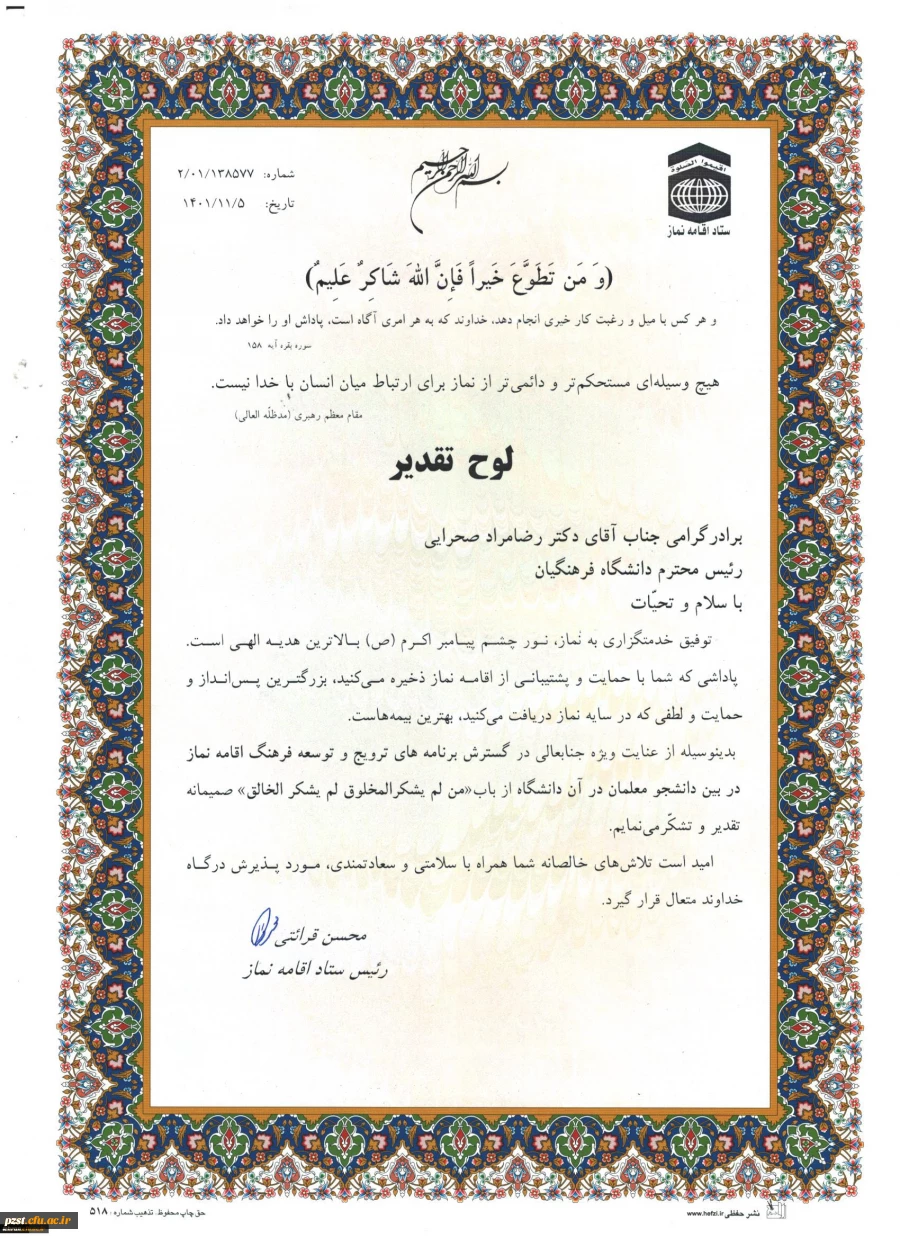 بسم الله الرحمن الرحیم
اقیموا الصلوة
ستاد اقامه نماز
شماره: ۲/۰۱/۱۳۸۵۷۷
تاریخ: ۱۴۰۱/۱۱/۵
(وَ مَن تَطَوَّعَ خَیراً فَإِنَّ اللهَ شَاکِرٌ عَلِیمٌ)
و هر کس با میل و رغبت کار خیری انجام دهد، خداوند که به هر امری آگاه است، پاداش او را خواهد داد.
سوره بقره آیه ۱۵۸
هیچ وسیله‌ای مستحکم‌تر و دائمی‌تر از نماز برای ارتباط میان انسان با خدا نیست.
مقام معظم رهبری (مدظلّه العالی)
لوح تقدیر
برادر گرامی جناب آقای دکتر رضامراد صحرایی
رئیس محترم دانشگاه فرهنگیان
با سلام و تحیّات
توفیق خدمتگزاری به نماز، نور چشم پیامبر اکرم (ص) بالاترین هدیه الهی است.
پاداشی که شما با حمایت و پشتیبانی از اقامه نماز ذخیره می‌کنید، بزرگترین پس‌انداز و
حمایت و لطفی که در سایه نماز دریافت می‌کنید، بهترین بیمه‌هاست.
بدینوسیله از عنایت ویژه جنابعالی در گسترش برنامه های ترویج و توسعه فرهنگ اقامه نماز
در بین دانشجو معلمان در آن دانشگاه از باب«من لم یشکرالمخلوق لم یشکر الخالق» صمیمانه
تقدیر و تشکّر می‌نمایم.
امید است تلاش‌های خالصانه شما همراه با سلامتی و سعادتمندی، مورد پذیرش درگاه
خداوند متعال قرار گیرد.
محسن قرائتی
رئیس ستاد اقامه نماز
نشر حفظی www.hefzi.ir
حق چاپ محفوظ. تذهیب شماره: ۵۱۸
pzst.cfu.ac.ir